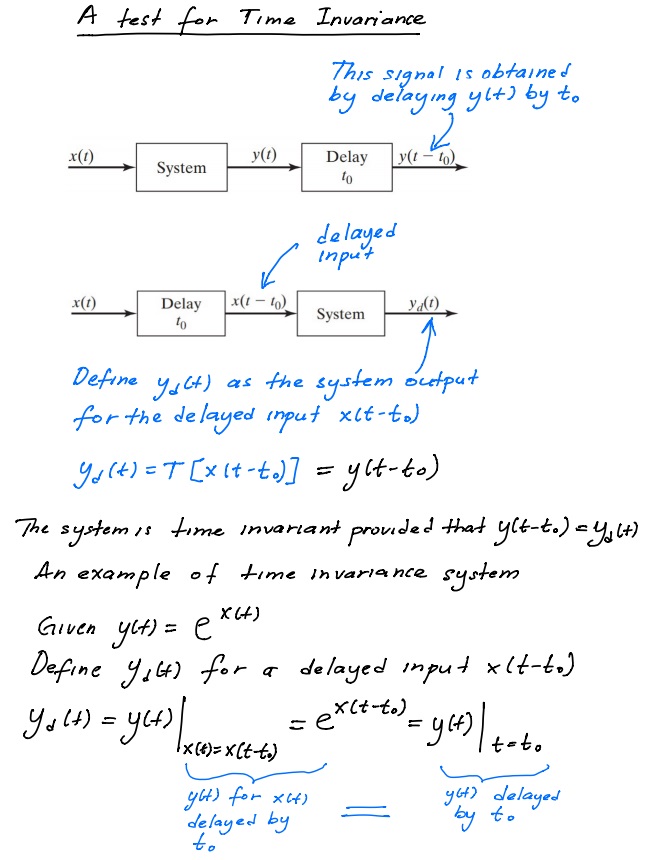 A test for Time Invariance
This signal is obtained
by delaying y(t) by t₀
x(t)
System
y(t)
Delay
t₀
y(t − t₀)
delayed
input
x(t)
Delay
t₀
x(t − t₀)
System
y_d(t)
Define y_d(t) as the system output
for the delayed input x(t-t₀)
y_d(t) = T[x(t-t₀)] = y(t-t₀)
The system is time invariant provided that y(t-t₀) = y_d(t)
An example of time invariance system
Given y(t) = e^x(t)
Define y_d(t) for a delayed input x(t-t₀)
y_d(t) = y(t)|x(t)=x(t-t₀) = e^x(t-t₀) = y(t)|t=t₀
y(t) for x(t)
delayed by
t₀
=
y(t) delayed
by t₀